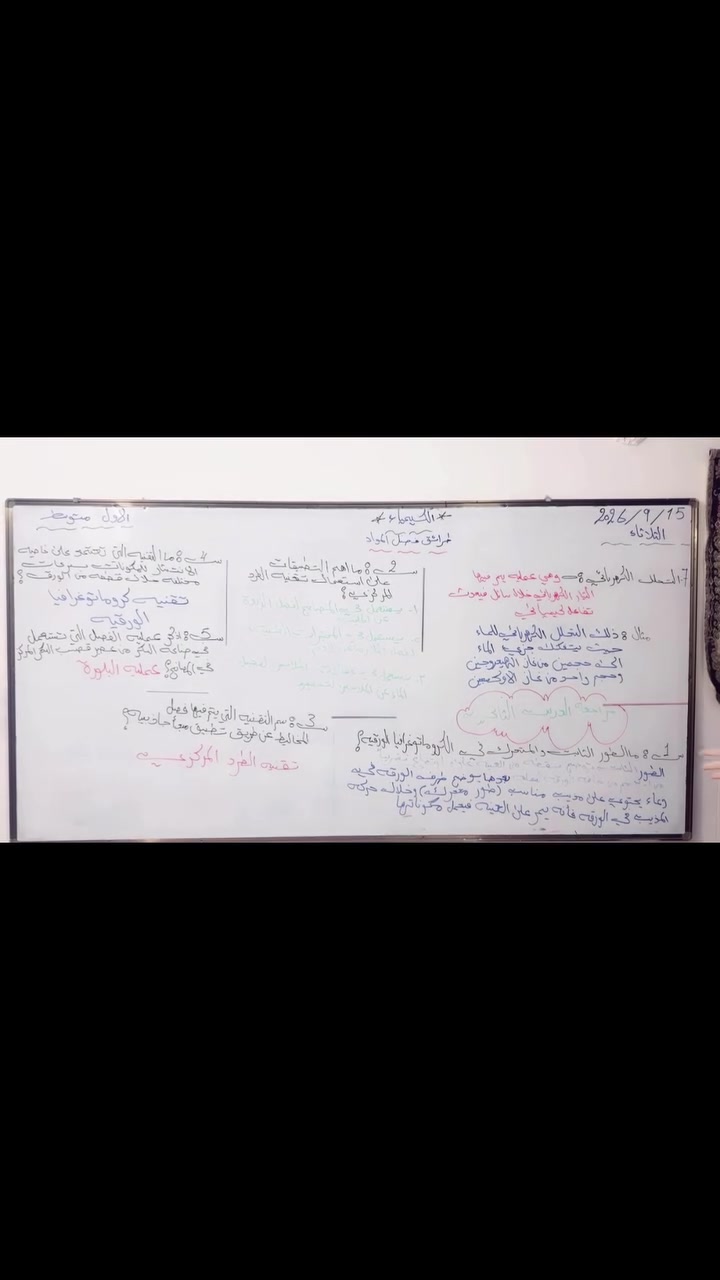 2026/9/15
الثلاثاء
*الكيمياء*
طرائق فصل المواد
الاول متوسط
7- التحلل الكهربائي 8- وهي عملية يمر فيها
التيار الكهربائي خلال سائل فيحدث
تفاعل كيميائي
مثال 8 ذلك التحلل الكهربائي للماء
حيث يتفكك جزيء الماء
الى حجمين من غاز الهيدروجين
وحجم واحد من غاز الاوكسجين
مراجعة الدرس الثاني
س1 8 ما الطور الثابت والمتحرك في الكروماتوغرافيا الورقية؟
الطور
بعدها يوضع طرف الورقة في
وعاء يحتوي على مذيب مناسب (طور متحرك) وخلال حركة
المذيب في الورقة فأنه يمر على العينة فيفصل مكوناتها
س2 8 ما اهم التطبيقات
على استعمالات تقنية الطرد
المركزي؟
1. يستعمل في المصانع لفصل الزبدة
عن الحليب
2. يستعمل في المختبرات
3. يستعمل
س3 8 سم التقنية التي يتم فيها فصل
المخاليط عن طريق تطبيق مبدأ جاذبية؟
تقنية الطرد المركزي
س4 8 ما التقنية التي تعتمد على خاصية
الانتشار للمكونات بسرعات
مختلفة خلال قطعة من الورق؟
تقنية كروماتوغرافيا
الورقية
س5 8 اذكر عملية الفصل التي تستعمل
في صناعة السكر من عصير قصب السكر المركز
في المصانع؟ عملية البلورة